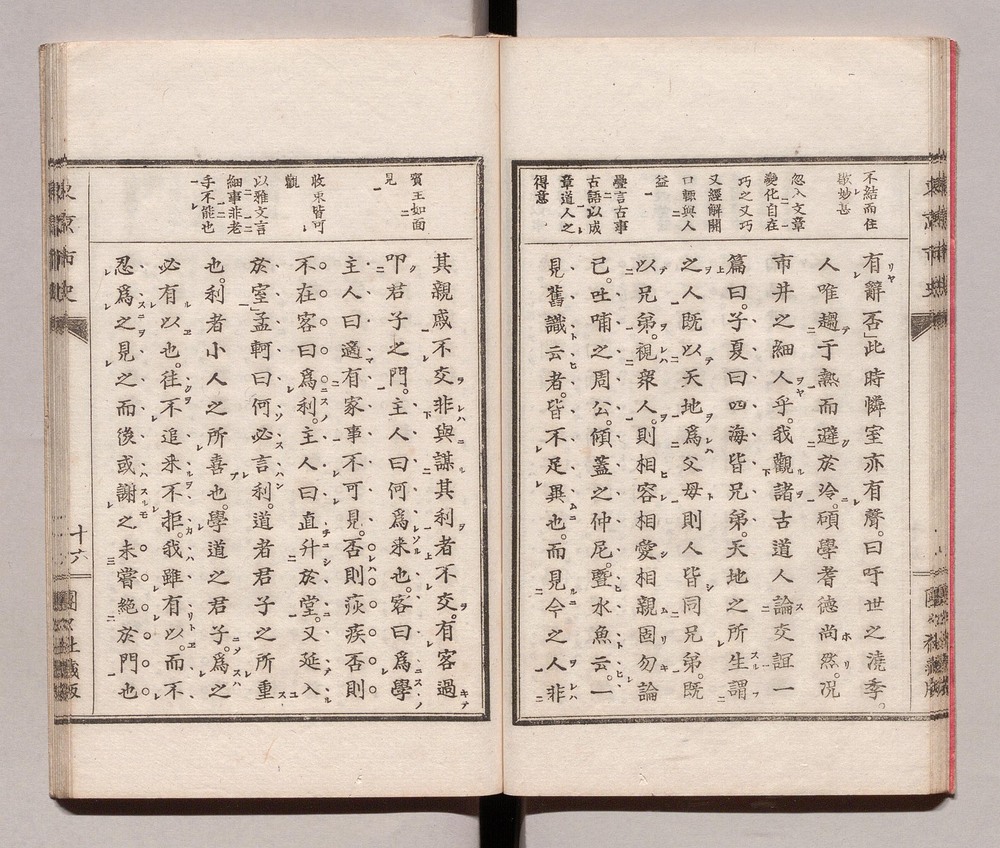 不結而住
敏妙甚
忽入文章
變化自在
巧之又巧
又經解開
口輙與人
益
疊言古事
古語以成
章道人之
得意
有辭否此時憐室亦有聲。曰吁世之澆季。
人唯趨于熱而避於冷。碩學耆德尚然。况
市井之細人乎。我觀諸古道人論交誼一
篇曰。子夏曰四海皆兄弟。天地之所生謂
之人既以天地爲父母則人皆同兄弟。既
以兄弟。視衆人。則相容相愛相親固勿論
已。吐哺之周公。傾蓋之仲尼。
見舊識云者。皆不足異也。而見今之人非
賓主如面
見
收束皆可
觀
以雅文言
細事非老
手不能也
其親戚不交非與謀其利者不交。有客過
叩君子之門。主人曰何爲來也。客曰爲學
主人曰適有家事不可見。否則疢疾否則
不在客曰爲利。主人曰直升於堂。又延入
於室」孟軻曰何必言利。道者君子之所重
也。利者小人之所喜也。學道之君子。爲之
必有以也。往不追来不拒。我雖有以。而不
忍爲之見之而後或謝之未嘗絶於門也
東京市史
十六